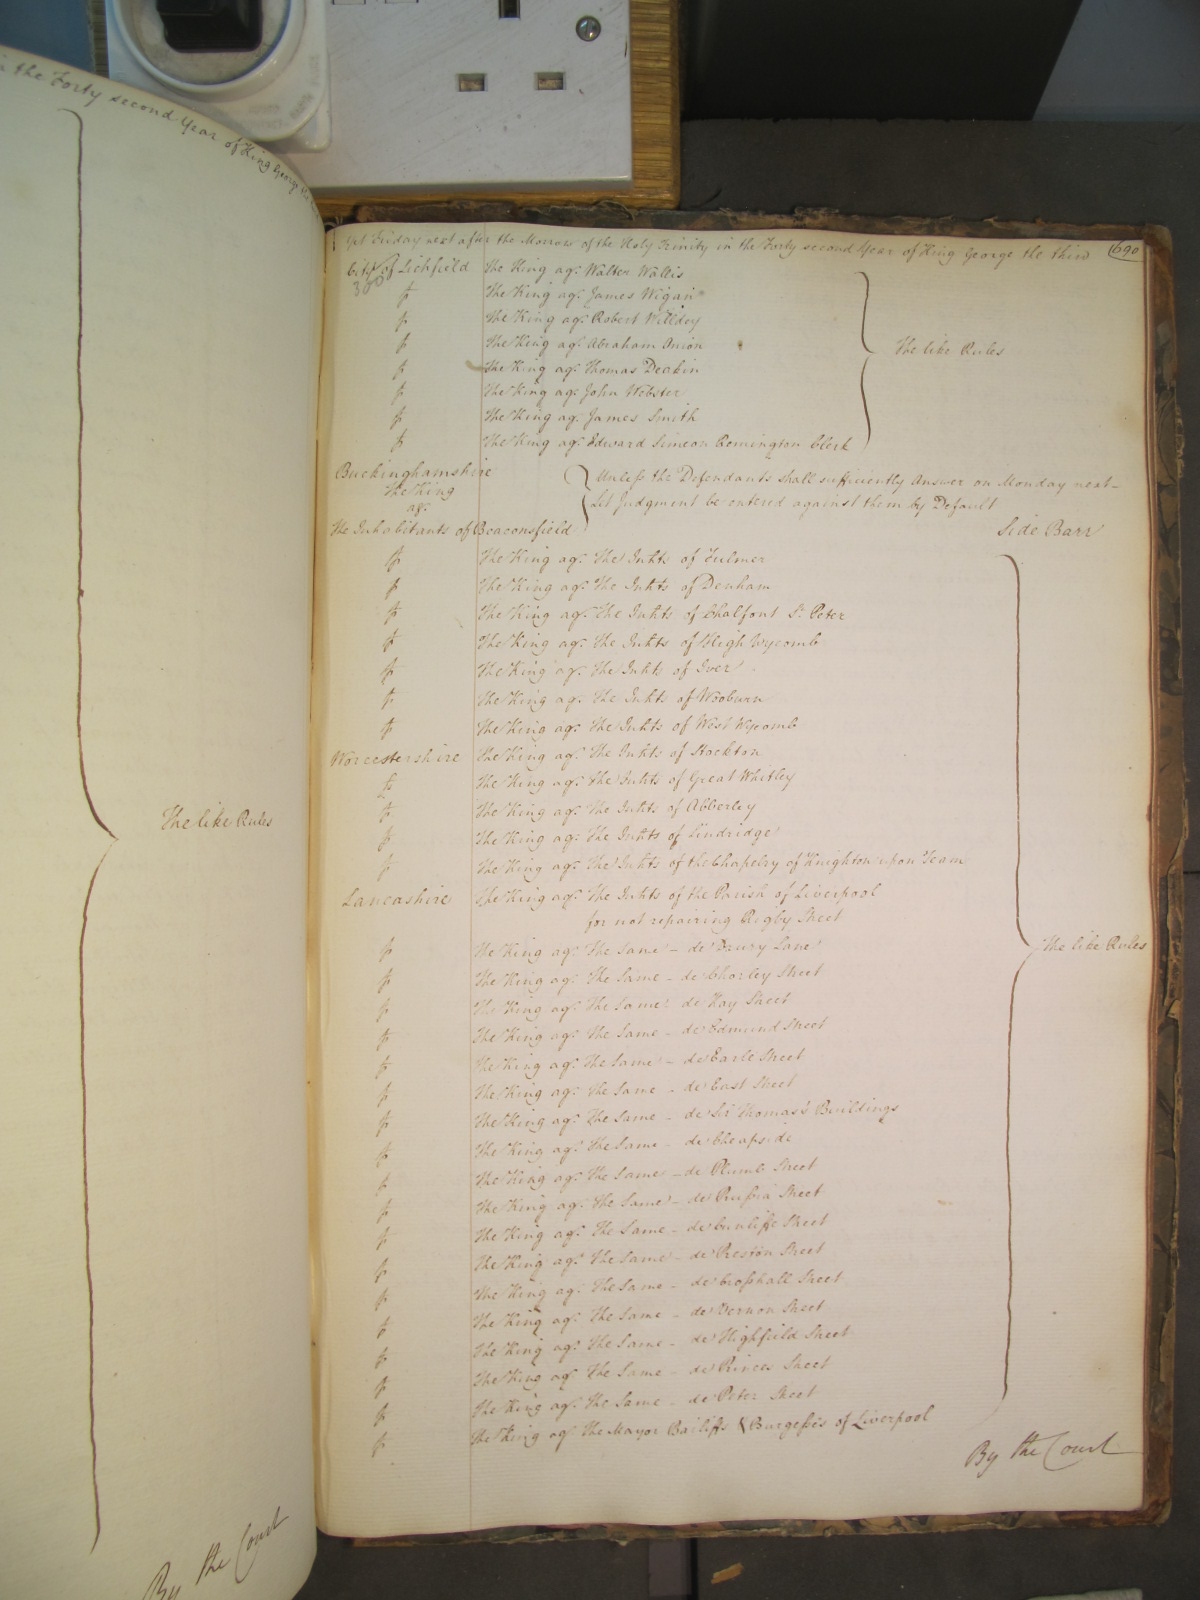 in the Forty second Year of King George the
The like Rules
By the Court
Yet Friday next after the Morrow of the Holy Trinity in the Forty second Year of King George the third 690
City of Lichfield The King agt. Walter Wallis
380
fs The King agt. James Wigan
fs The King agt. Robert Willdey
fs The King agt. Abraham Onion
The like Rules
fs The King agt. Thomas Deakin
fs The King agt. John Webster
fs The King agt. James Smith
fs The King agt. Edward Simeon Remington Clerk
Buckinghamshire
The King
agt.
The Inhabitants of Beaconsfield
Unless the Defendants shall sufficiently Answer on Monday next
Let Judgment be entered against them by Default
Side Barr
fs The King agt. The Inhts of Fulmer
fs The King agt. The Inhts of Denham
fs The King agt. The Inhts of Chalfont St. Peter
fs The King agt. The Inhts of High Wycomb
fs The King agt. The Inhts of Iver
fs The King agt. The Inhts of Wooburn
fs The King agt. The Inhts of West Wycomb
Worcestershire The King agt. The Inhts of Stockton
fs The King agt. The Inhts of Great Whitley
fs The King agt. The Inhts of Abberley
fs The King agt. The Inhts of Lindridge
fs The King agt. The Inhts of the Chapelry of Knighton upon Team
Lancashire The King agt. The Inhts of the Parish of Liverpool
for not repairing Rigby Street
fs The King agt. The Same - de Drury Lane
The like Rules
fs The King agt. The Same - de Chorley Street
fs The King agt. The Same - de Hay Street
fs The King agt. The Same - de Edmund Street
fs The King agt. The Same - de Earle Street
fs The King agt. The Same - de East Street
fs The King agt. The Same - de Sir Thomas's Buildings
fs The King agt. The Same - de Cheapside
fs The King agt. The Same - de Plumb Street
fs The King agt. The Same - de Prussia Street
fs The King agt. The Same - de Cunliffe Street
fs The King agt. The Same - de Preston Street
fs The King agt. The Same - de Crosshall Street
fs The King agt. The Same - de Vernon Street
fs The King agt. The Same - de Highfield Street
fs The King agt. The Same - de Princes Street
fs The King agt. The Same - de Peter Street
fs The King agt. The Mayor Bailiffs & Burgesses of Liverpool
By the Court